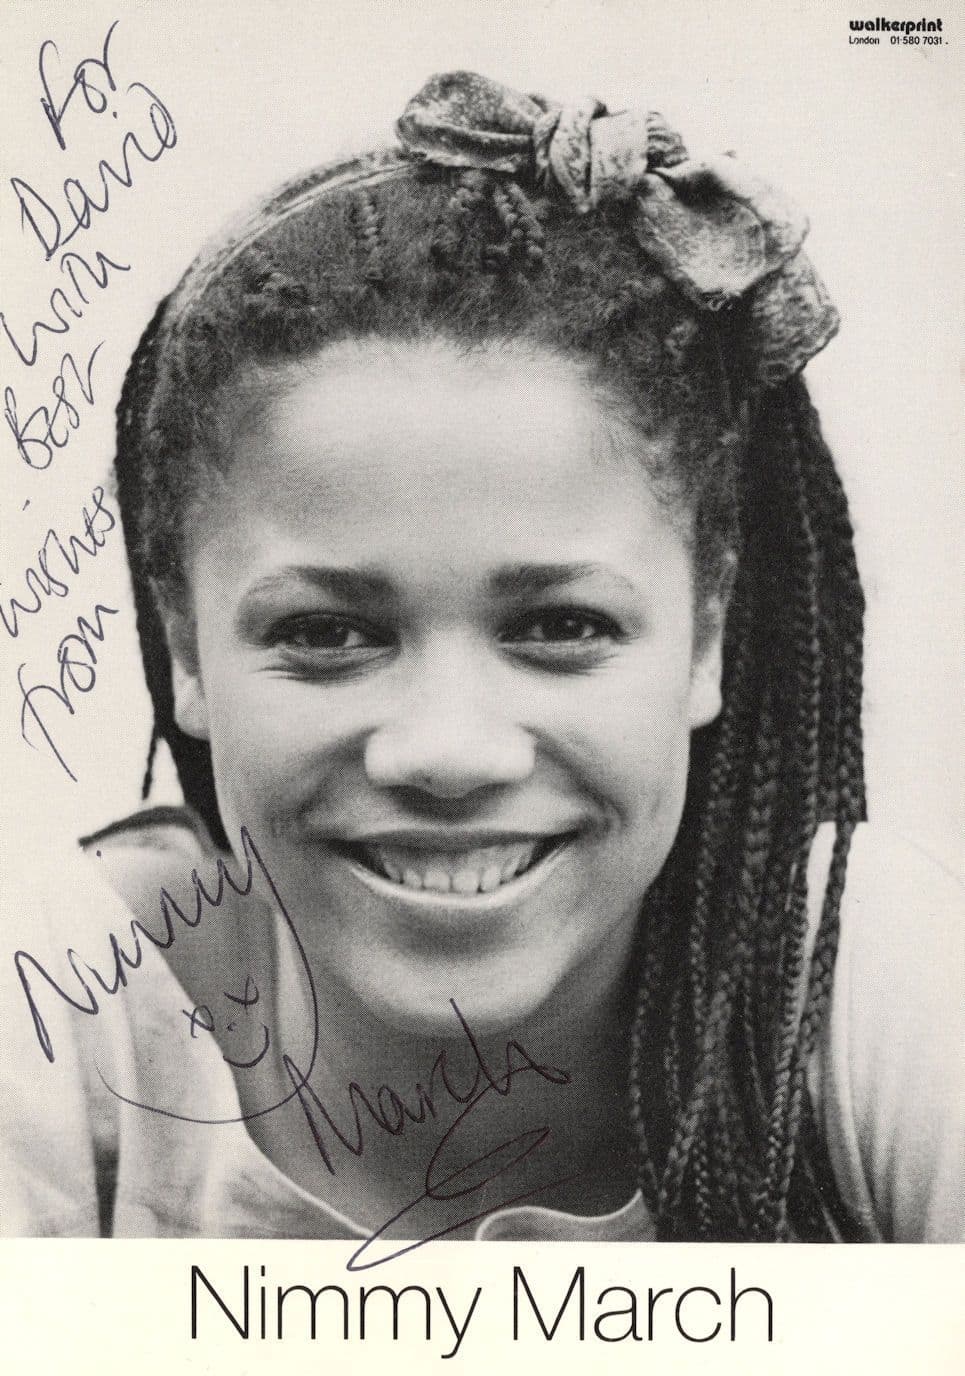 walkerprint
London 01·580 7031.
For
David
With
Best
Wishes
from
Nimmy
March
Nimmy March